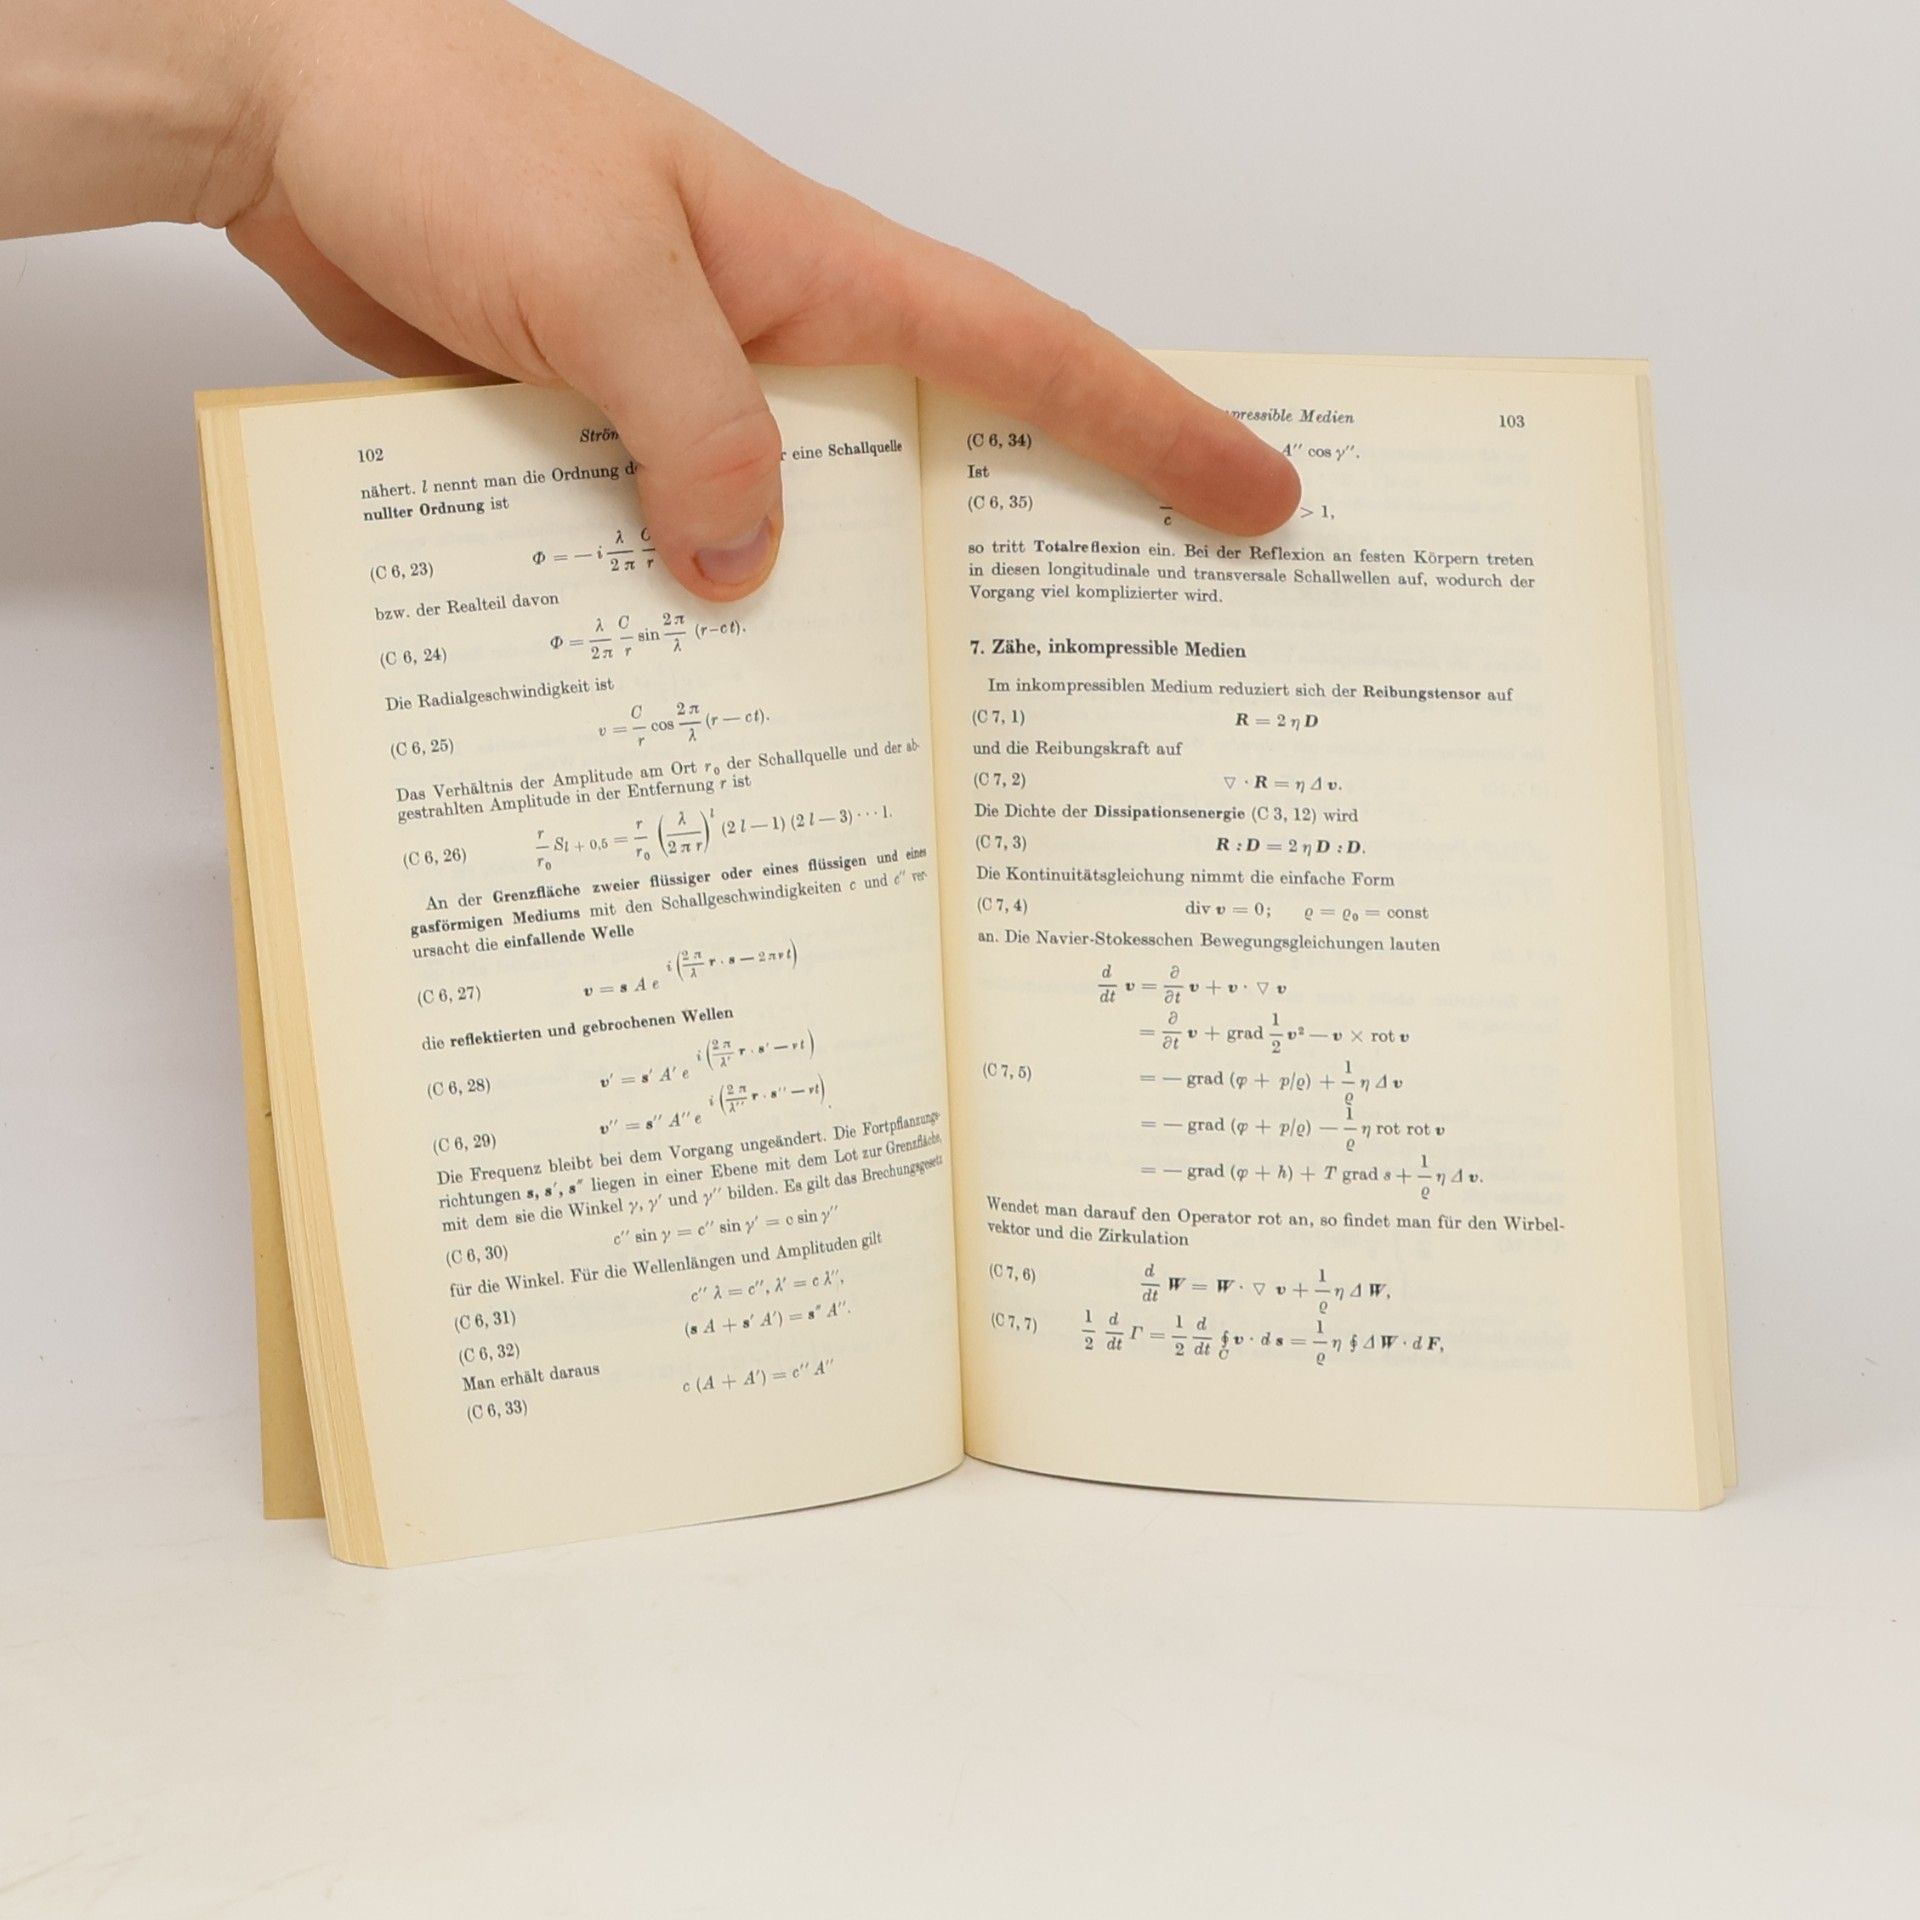 102
nähert. l nennt man die Ordnung eine Schallquelle
nullter Ordnung ist
(C 6, 23) Φ = — i λ/2π C/r
bzw. der Realteil davon
(C 6, 24) Φ = λ/2π C/r sin 2π/λ (r—ct).
Die Radialgeschwindigkeit ist
(C 6, 25) v = C/r cos 2π/λ (r — ct).
Das Verhältnis der Amplitude am Ort r₀ der Schallquelle und der ab-
gestrahlten Amplitude in der Entfernung r ist
(C 6, 26) r/r₀ S_{l + 0,5} = r/r₀ (λ/2πr)^l (2 l — 1) (2 l — 3) ··· 1.
An der Grenzfläche zweier flüssiger oder eines flüssigen und eines
gasförmigen Mediums mit den Schallgeschwindigkeiten c und c″ ver-
ursacht die einfallende Welle
(C 6, 27) v = s A e^{i(2π/λ r · s — 2πνt)}
die reflektierten und gebrochenen Wellen
(C 6, 28) v′ = s′ A′ e^{i(2π/λ′ r · s′ — νt)}
(C 6, 29) v″ = s″ A″ e^{i(2π/λ″ r · s″ — νt)}.
Die Frequenz bleibt bei dem Vorgang ungeändert. Die Fortpflanzungs-
richtungen s, s′, s″ liegen in einer Ebene mit dem Lot zur Grenzfläche,
mit dem sie die Winkel γ, γ′ und γ″ bilden. Es gilt das Brechungsgesetz
(C 6, 30) c″ sin γ = c″ sin γ′ = c sin γ″
für die Winkel. Für die Wellenlängen und Amplituden gilt
(C 6, 31) c″ λ = c″, λ′ = c λ″,
(C 6, 32) (s A + s′ A′) = s″ A″.
Man erhält daraus
(C 6, 33) c (A + A′) = c″ A″
Medien 103
(C 6, 34) A″ cos γ″.
Ist
(C 6, 35) c > 1,
so tritt Totalreflexion ein. Bei der Reflexion an festen Körpern treten
in diesen longitudinale und transversale Schallwellen auf, wodurch der
Vorgang viel komplizierter wird.
7. Zähe, inkompressible Medien
Im inkompressiblen Medium reduziert sich der Reibungstensor auf
(C 7, 1) R = 2 η D
und die Reibungskraft auf
(C 7, 2) ▽ · R = η Δ v.
Die Dichte der Dissipationsenergie (C 3, 12) wird
(C 7, 3) R : D = 2 η D : D.
Die Kontinuitätsgleichung nimmt die einfache Form
(C 7, 4) div v = 0; ϱ = ϱ₀ = const
an. Die Navier-Stokesschen Bewegungsgleichungen lauten
d/dt v = ∂/∂t v + v · ▽ v
= ∂/∂t v + grad 1/2 v² — v × rot v
(C 7, 5) = — grad (φ + p/ϱ) + 1/ϱ η Δ v
= — grad (φ + p/ϱ) — 1/ϱ η rot rot v
= — grad (φ + h) + T grad s + 1/ϱ η Δ v.
Wendet man darauf den Operator rot an, so findet man für den Wirbel-
vektor und die Zirkulation
(C 7, 6) d/dt W = W · ▽ v + 1/ϱ η Δ W,
(C 7, 7) 1/2 d/dt Γ = 1/2 d/dt ∮_C v · d s = 1/ϱ η ∮ Δ W · d F,